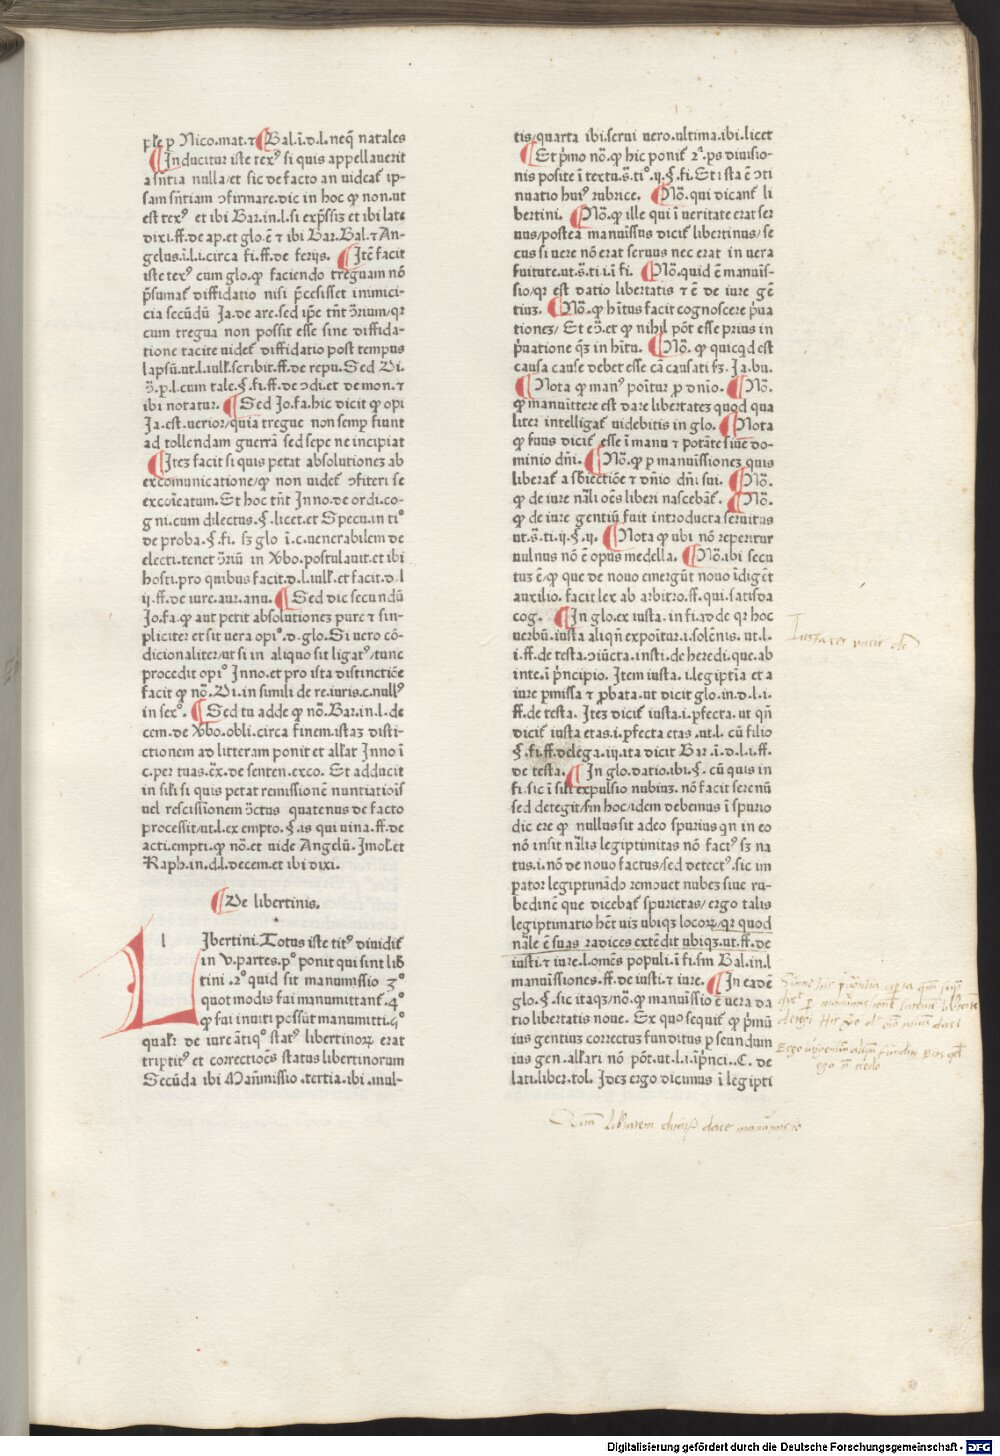 ple p Nico.mat.⁊ Bal.ī.d.l. neq̃ natales
Inducitur iste texꝰ si quis appellauerit
a sñtia nulla/et sic de facto an uideat̃ ip-
sam sñtiam ↄfirmare.dic in hoc ꝙ non.ut
est texꝰ et ibi Bar.in.l.si exp̃ssiʒ et ibi late
dixi.ff.de ap.et glo.ē ⁊ ibi Bar.Bal.⁊ An-
gelus.ī.l.i.circa fi.ff.de ferijs. Itē facit
iste texꝰ cum glo.ꝙ faciendo treguam nō
p̃sumat̃ diffidatio nisi p̃cesisset inimici-
cia secūdū Ja.de are.sed ip̃e tñt ↄ̃rium/qꝛ
cum tregua non possit esse sine diffida-
tione tacite uidet̃ diffidatio post tempus
lapsū.ut.l.iull̃.scribit.ff.de repu.Sed Di.
ↄ̃.p.l.cum tale.§.fi.ff.de ↄdi.et demon.⁊
ibi notatur. Sed Jo.fa.hic dicit ꝙ opi
Ja.est.uerior/quia tregue non semp fiunt
ad tollendam guerrā sed sepe ne incipiat
Iteʒ facit si quis petat absolutioneʒ ab
excomunicatione/ꝙ non uidet̃ ↄfiteri se
excoīcatum. Et hoc tñt Inno.de ordi.co-
gni.cum dilectus.§.licet.et Specu.in tiº
de proba.§.fi. sʒ glo ī.c.uenerabilem de
electi.tenet ↄ̃riū in ꝟbo.postulauit.et ibi
hosti.pro quibus facit.d.l.iull̃.et facit.d.l
ij.ff.de iure.aur.anu. Sed dic secundū
Jo.fa.ꝙ aut petit absolutioneʒ pure ⁊ sin-
pliciter et sit uera opiº.d.glo.Si uero cō-
dicionaliter/ut si in aliquo sit ligatꝰ/tunc
procedit opiº Inno.et pro ista distinctiōe
facit ꝙ nō.Di.in simili de re.iuris.c.nullꝰ
in sexº. Sed tu adde ꝙ nō.Bar.in.l.de
cem.de ꝟbo.obli.circa finem.istaʒ disti-
ctionem ad litteram ponit et all̃at Inno ī
c.per tuas.ex̃.de senten.exco. Et adducit
in sil̃i si quis petat remissionē nuntiatioīs̃
uel rescissionem ↄ̃ctus quatenus de facto
processit/ut.l.ex empto.§.is qui uina.ff.de
acti.empti.ꝙ nō.et uide Angelū.Imol̃.et
Raph.in.d.l.decem.et ibi dixi.
De libertinis.
l Ibertini.Totus iste titꝰ diuidit̃
in V.partes.pº ponit qui sint lib̃
tini .2º quid sit manumissio 3º
quot modis fui manumittant̃.4º
ꝙ fui inuiti possūt manumitti.5º
qual̃r de iure ātiqº statꝰ libertinoꝝ erat
triptitꝰ et correctioēs status libertinorum
Secūda ibi Mañmissio.tertia.ibi.mul-
tis/quarta ibi.serui uero.ultima.ibi.licet
Et p̃mo nō.ꝙ hic ponit̃ 2ª.ps diuisio-
nis posite ī textu.s̃.tiº.ij.§.fi.Et ista ē ↄti
nuatio huiꝰ rubrice. Nō.qui dicant̃ li
bertini. Nō.ꝙ ille qui ī ueritate erat ser
uus/postea manuissus dicit̃ libertinus/se
cus si uere nō erat seruus nec erat in uera
fuitute.ut.s̃.ti.i.ī fi. Nō.quid ē manuis̃-
sio/qꝛ est datio libertatis ⁊ ē de iure gē
tiuʒ. Nō.ꝙ hītus facit cognoscere p̃ua
tioneʒ/ Et eↄ̃.et ꝙ nihil pōt esse prius in
p̃uatione qʒ in hītu. Nō. ꝙ quicqd est
causa cause debet esse cā causati fʒ.Ja.bu.
Nota ꝙ manꝰ poītur p dnĩo. Nō.
ꝙ manuittere est dare libertateʒ quod qua
liter intelligat̃ uidebitis in glo. Nota
ꝙ fuus dicit̃ esse ī manu ⁊ potãte siue do-
minio dñi. Nō.ꝙ p manuissioneʒ quis
liberat̃ a sb̃iectiōe ⁊ dñio dñi sui. Nō.
ꝙ de iure nāli oēs liberi nascebāt̃. Nō.
ꝙ de iure gentiū fuit introducta seruitus
ut.s̃.ti.ij.§.ij. Nota ꝙ ubi nō reperitur
uulnus nō ē opus medella. Nō.ibi secu
tuʒ ē/ꝙ que de nouo emergūt nouo īdigēt
auxilio. facit lex ab arbitro.ff.qui.satisda
cog. In glo.ex iusta.in fi.⁊o de qꝛ hoc
uerbū.iusta aliqñ expoitur.i.solēnis. ut.l.
i.ff.de testa.ↄiūcta.insti.de heredi.que.ab
inte.ī p̃ncipio. Item iusta.i.legiptīa et a
iure p̃missa ⁊ p̃bata.ut dicit glo.in.d.l.i.
ff.de testa. Iteʒ dicit̃ iusta.i.p̃fecta.ut qñ
dicit̃ iusta etas.i.p̃fecta etas.ut.l. cū filio
§.fi.ff.delega.iij.ita dicit Bar.ī.d.l.i.ff.
de testa. In glo.datio.ibi.§. cū quis in
fi.sic ī sil̃i expulsio nubiuʒ. nō facit serenū
sed detegit/sm̃ hoc/idem debemus ī spurio
dic ere ꝙ nullus sit adeo spurius qn in eo
nō insit nālis legiptimitas nō factꝰ sʒ na
tus.i.nō de nouo factus/sed detectꝰ.sic im
pator legiptunādo remouet nubeʒ siue ru-
bedinē que dicebat̃ spurietas/ergo talis
legiptimatio hēt uiʒ ubiqʒ locoꝝ/qꝛ quod
nāle ē suas radices extēdit ubiqʒ.ut.ff.de
iusti.⁊ iure.l.omēs populi.ī fi.sm̃ Bal.in.l
manuissiones.ff.de iusti.⁊ iure. In eadē
glo.§.sic itaqʒ/nō.ꝙ manuissio ē uera da
tio libertatis noue. Ex quo sequit̃ ꝙ p̃mū
ius gentiuʒ correctuʒ funditus p secundum
ius gen.all̃ari nō pōt.ut.l.i.ī p̃nci..C. de
lati.liber.tol. Ideʒ ergo dicimus ī legipti
Digitalisierung gefördert durch die Deutsche Forschungsgemeinschaft - DFG